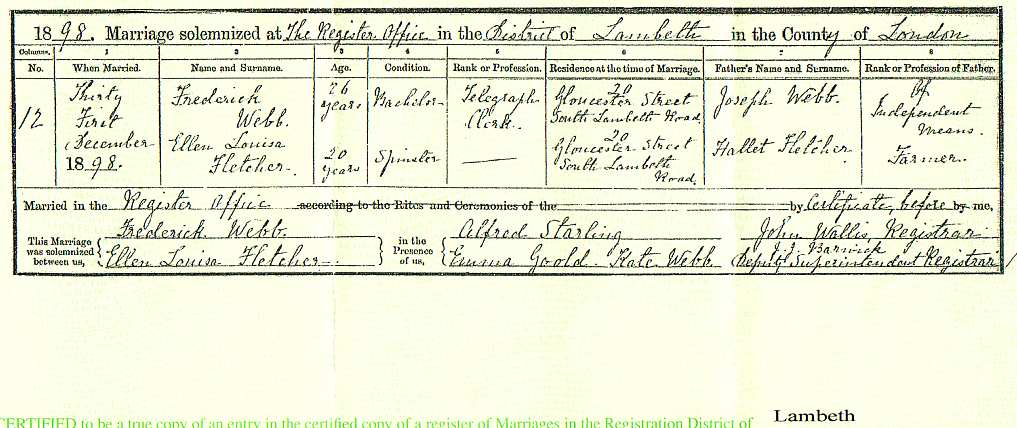 1898. Marriage solemnized at The Register Office in the District of Lambeth in the County of London
Columns. 1 2 3 4 5 6 7 8
No. When Married. Name and Surname. Age. Condition. Rank or Profession. Residence at the time of Marriage. Father's Name and Surname. Rank or Profession of Father.
12 Thirty First December 1898. Frederick Webb. 26 years Bachelor Telegraph Clerk. 20 Gloucester Street South Lambeth Road Joseph Webb. Of Independent Means.
Ellen Louisa Fletcher. 20 years Spinster — 20 Gloucester Street South Lambeth Road. Hallet Fletcher Farmer.
Married in the Register Office according to the Rites and Ceremonies of the by Certificate, before by me,
This Marriage was solemnized between us, Frederick Webb. in the Presence of us, Alfred Starling John Wallis Registrar
Ellen Louisa Fletcher. Emma Goold. Kate Webb J. J. Barwick Deputy Superintendent Registrar
CERTIFIED to be a true copy of an entry in the certified copy of a register of Marriages in the Registration District of Lambeth